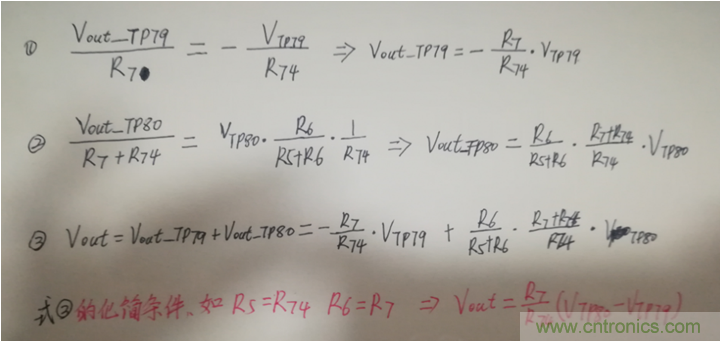 ① Vout_TP79 / R7 = - VTP79 / R74 ⇒ Vout_TP79 = - R7 / R74 · VTP79
② Vout_TP80 / R7+R74 = VTP80 · R6 / R5+R6 · 1 / R74 ⇒ Vout_TP80 = R6 / R5+R6 · R7+R74 / R74 · VTP80
③ Vout = Vout_TP79 + Vout_TP80 = - R7 / R74 · VTP79 + R6 / R5+R6 · R7+R74 / R74 · VTP80
式③的化简条件、如 R5=R74 R6=R7 ⇒ Vout = R7 / R74 (VTP80 - VTP79)
www.cntronics.com